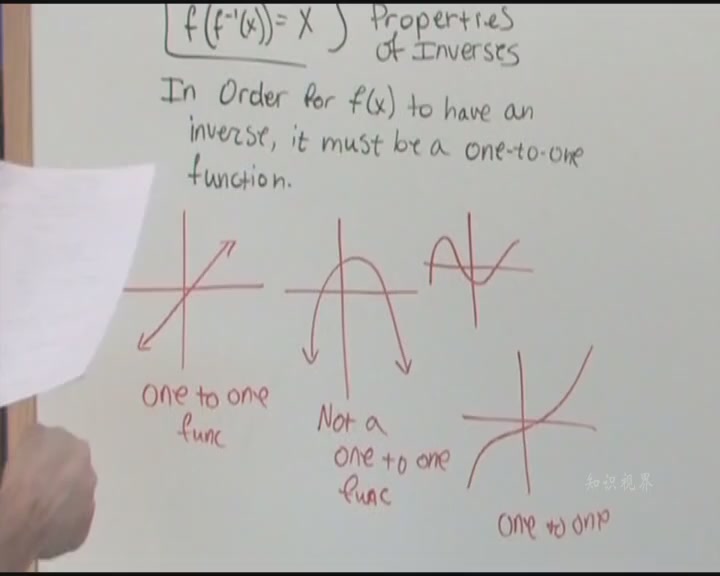 f(f⁻¹(x)) = x
Properties
of Inverses
In Order for f(x) to have an
inverse, it must be a one-to-one
function.
One to one
func
Not a
one to one
func
One to one
知识视界